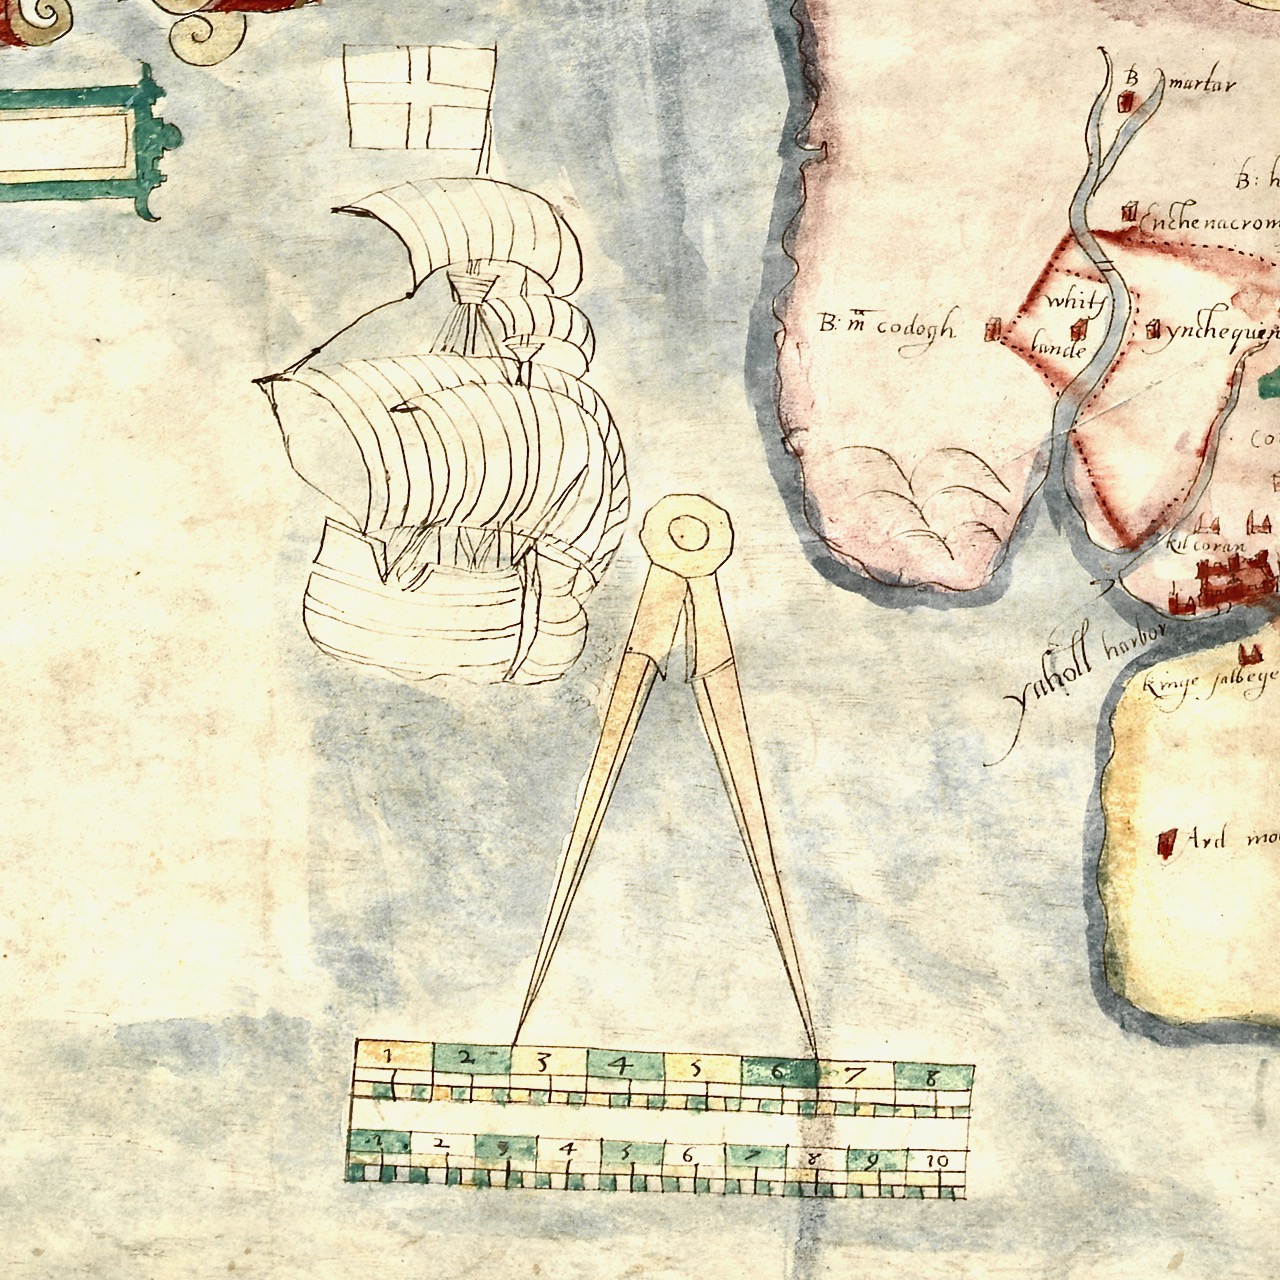 B martar
B: h
Enchenacrom
whits
lande
B: m codogh
ynchequin
Co
kilcoran
yaholl harbor
kinge salbege
Ard mo
1 2 3 4 5 6 7 8
1 2 3 4 5 6 7 8 9 10